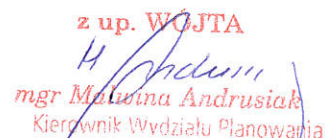 z up. WÓJTA
mgr Malwina Andrusiak
Kierownik Wydziału Planowania